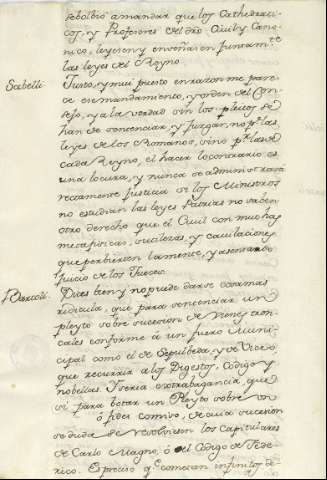 se bolbio a mandar que los Cathedrati-
cos, y Profesores del dro Civil y Cano-
nico, leyesen y enseñasen juntamte
las leyes del Reyno.
Sabelli Justo, y mui puesto en razon me pare-
ce ese mandamiento, y orden del Con-
sejo, y a la verdad si en los pleitos se
han de sentenciar, y juzgar, no pr las
leyes de los Romanos, sino pr las de
cada Reyno, el hacer lo contrario es
una locura, y nunca se administrará
rectamente justicia si los Ministros
no estudian las leyes Patrias no saben
otro derecho que el Civil con muchas
metaphisicas, sutilezas, y cavilaciones
que perbierten la mente, y
juicio de los Jueces.
Dices bien y no puede darse cosa mas
ridicula, que para sentenciar un
pleyto sobre sucesion de vienes tron-
cales conforme á un fuero Muni-
cipal como el de Sepulbeda, y se viese
que recurrir a los Digestos, Codigo y
nobelas. Y seria extrabagancia, que
si para botar un Pleyto sobre un
ó fidei comiso, de cuia sucesion
se duda se revolviesen los Capitulares
de Carlo Magno, ó del Codigo de Tede-
rico. Es preciso q. cometan infinitos de-